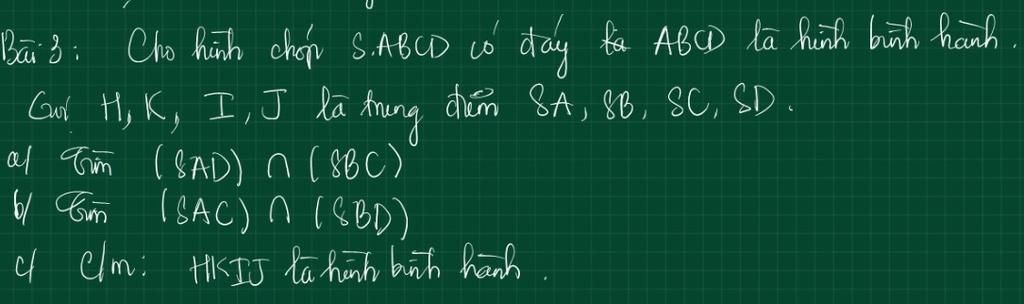 Bài 3: Cho hình chóp S.ABCD có đáy ABCD là hình bình hành.
Gọi H, K, I, J là trung điểm SA, SB, SC, SD.
a/ Tìm (SAD) ∩ (SBC)
b/ Tìm (SAC) ∩ (SBD)
c/ C/m: HKIJ là hình bình hành.